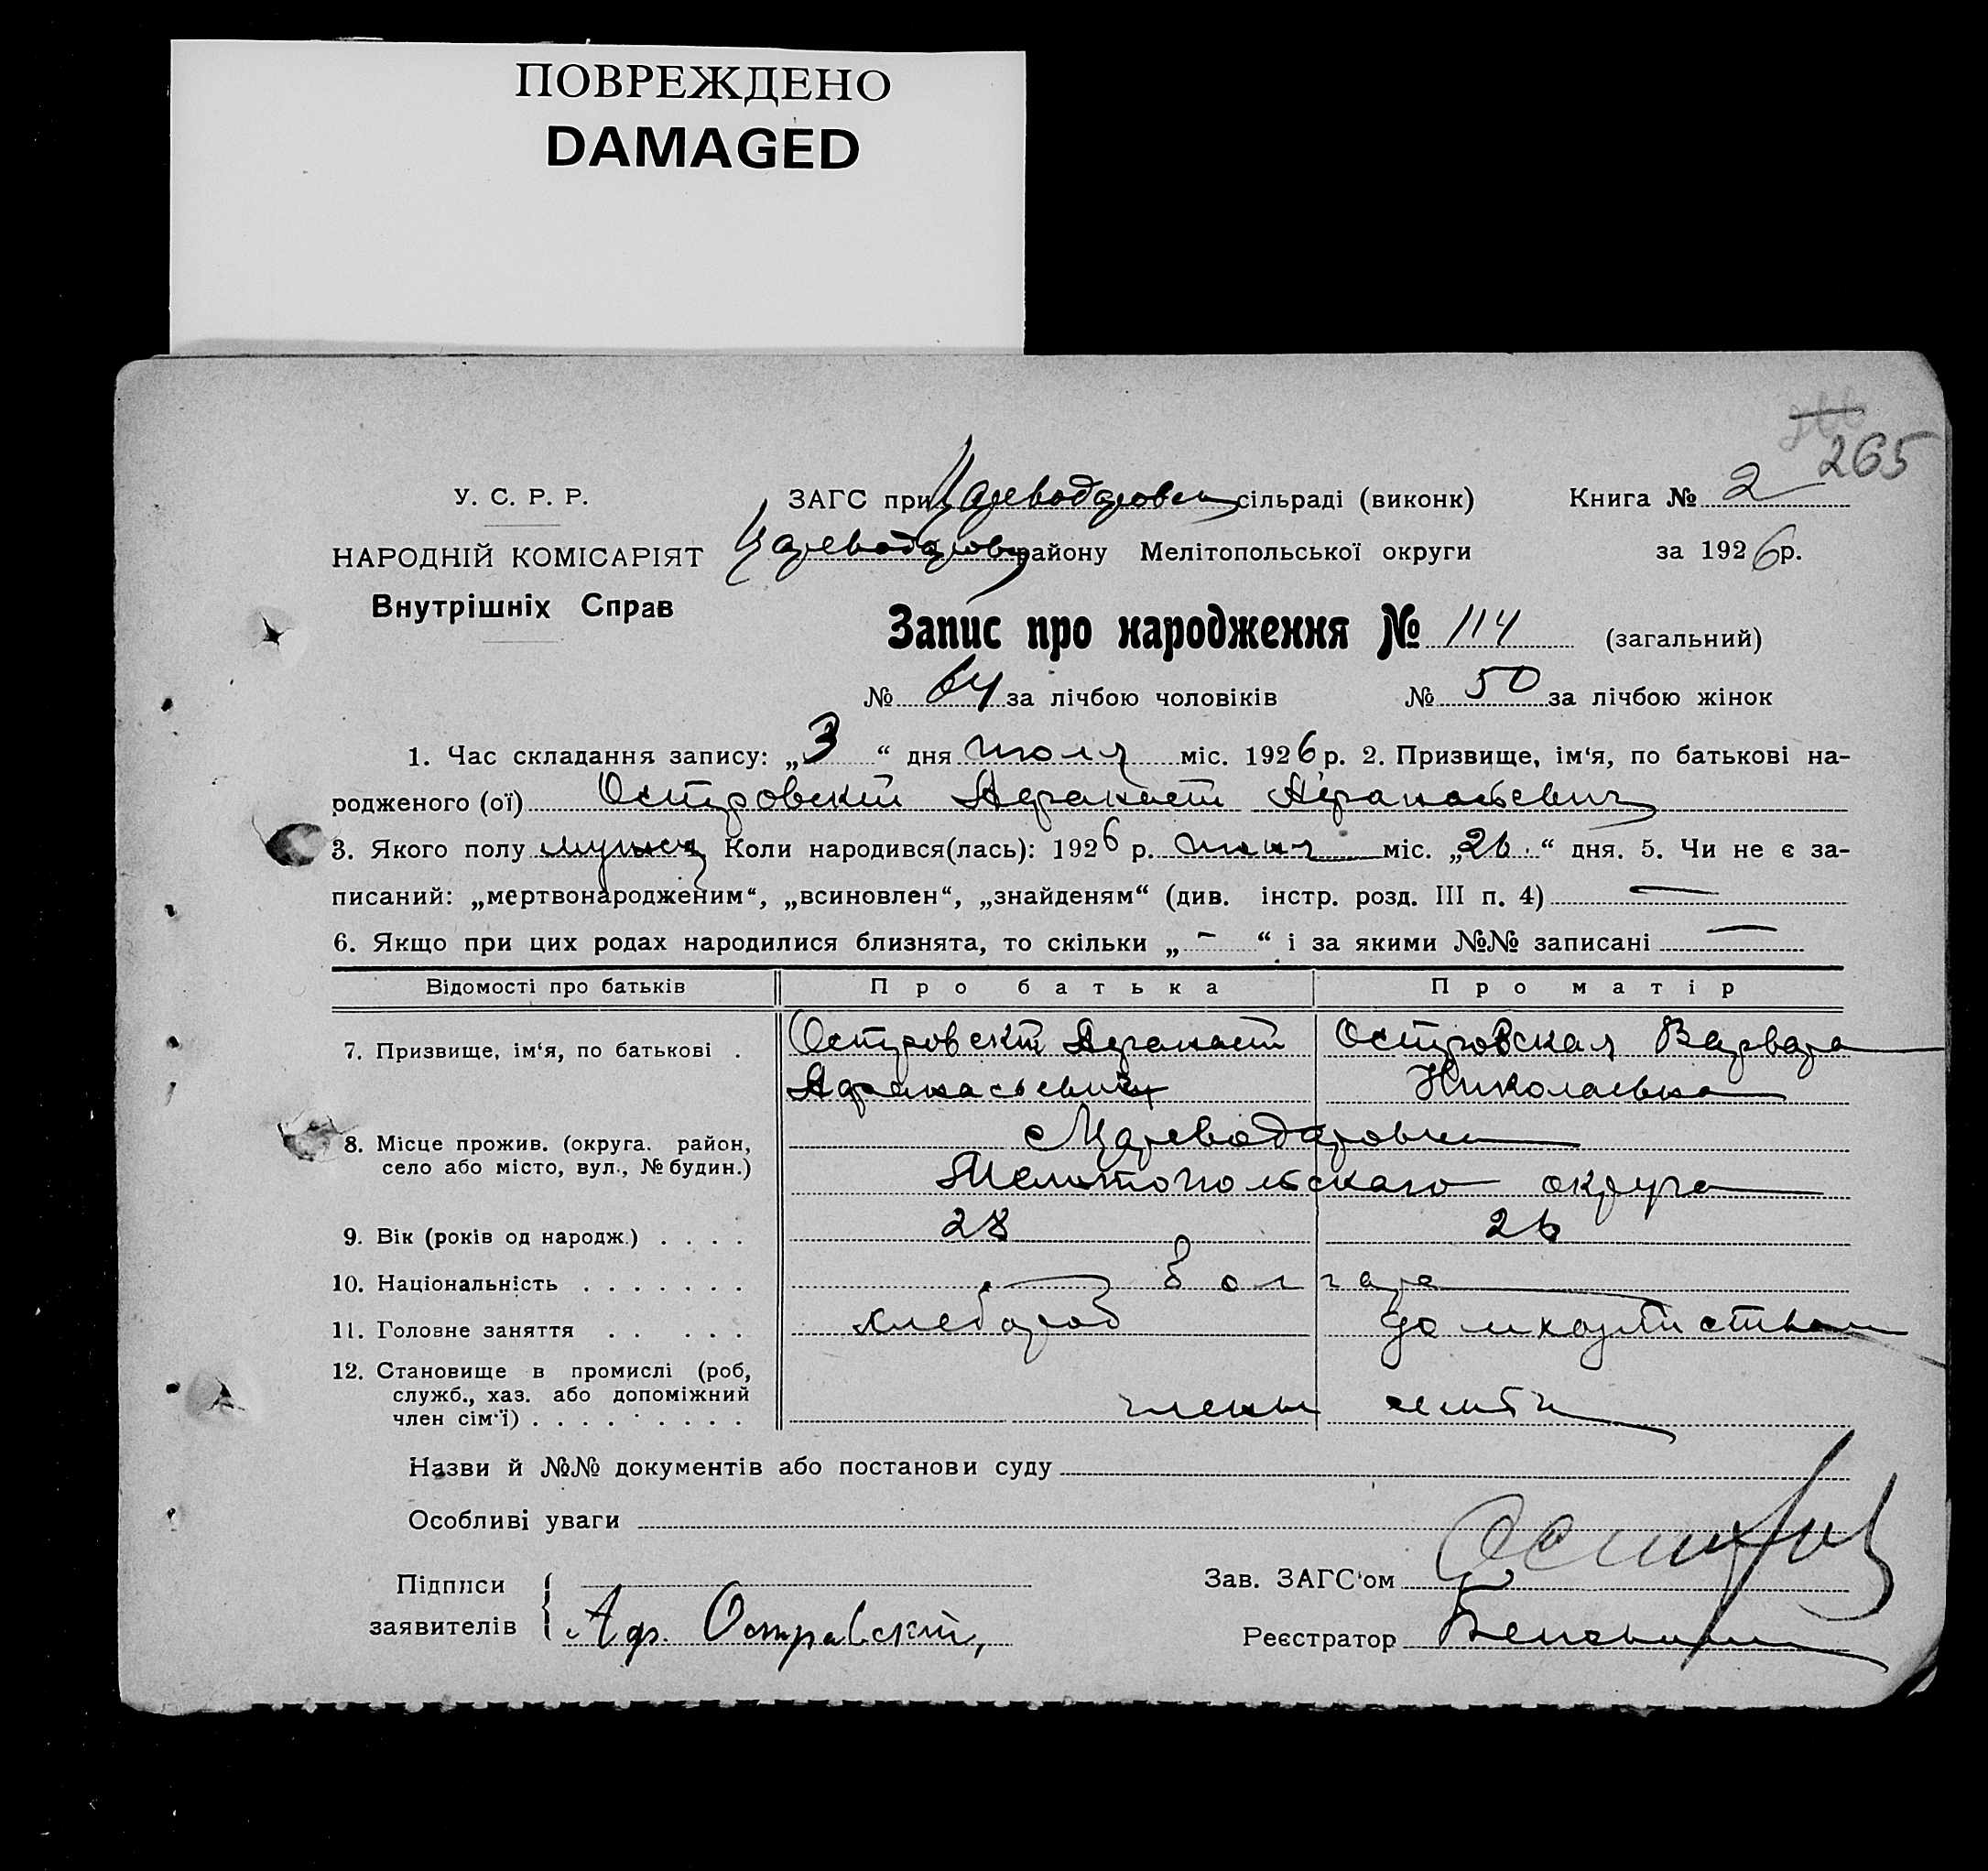 ПОВРЕЖДЕНО
DAMAGED
265
У. С. Р. Р.
ЗАГС при Цареводаровск сільраді (виконк)
Книга № 2
НАРОДНІЙ КОМІСАРІЯТ
Цареводаров району Мелітопольської округи
за 1926 р.
Внутрішніх Справ
Запис про народження № 114 (загальний)
№ 64 за лічбою чоловіків № 50 за лічбою жінок
1. Час складання запису: „3“ дня июля міс. 1926 р. 2. Призвище, ім‘я, по батькові на-
родженого (ої) Островский Афанасий Афанасьевич
3. Якого полу мужск Коли народився(лась): 1926 р. июня міс. „26.“ дня. 5. Чи не є за-
писаний: „мертвонародженим“, „всиновлен“, „знайденям“ (див. інстр. розд. III п. 4) —
6. Якщо при цих родах народилися близнята, то скільки „-“ і за якими №№ записані —
Відомості про батьків Про батька Про матір
7. Призвище, ім‘я, по батькові . Островский Афанасий Островская Варвара
Афанасьевич Николаевна
8. Місце прожив. (округа. район, с Цареводаровка
село або місто, вул., № будин.)
Мелитопольскаго округа
9. Вік (років од народж.) . . . . 28 26
10. Національність . . . . . . . болгаре
11. Головне заняття . . . . . хлебороб домхозяйством
12. Становище в промислі (роб,
служб., хаз. або допоміжний
член сім‘ї) . . . . . . . . . члены семьи
Назви й №№ документів або постанови суду
Особливі уваги
Підписи
Зав. ЗАГС‘ом
заявителів Аф. Островский,
Реєстратор